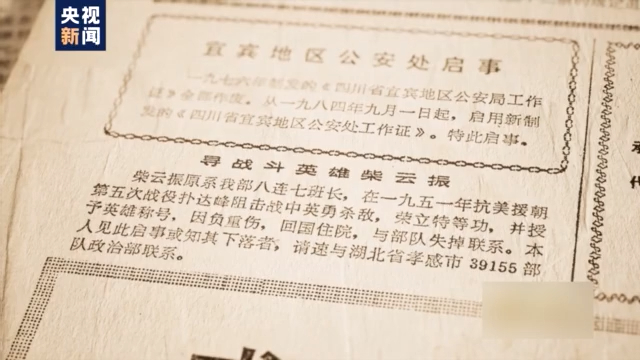 央视
新闻
宜宾地区公安处启事
一九七六年制发的《四川省宜宾地区公安局工作
证》全部作废。从一九八四年九月一日起，启用新制
发的《四川省宜宾地区公安处工作证》。特此启事。
寻战斗英雄柴云振
柴云振原系我部八连七班长，在一九五一年抗美援朝
第五次战役扑达峰阻击战中英勇杀敌，荣立特等功，并授
予英雄称号，因负重伤，回国住院，与部队失掉联系。本
人见此启事或知其下落者，请速与湖北省孝感市39155部
队政治部联系。